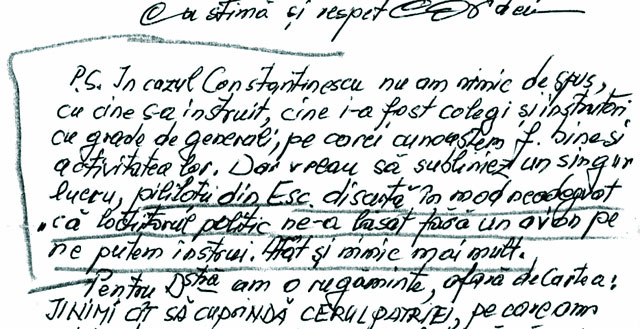 Cu stimă și respect
P.S. In cazul Constantinescu nu am nimic de spus,
cu cine s-a instruit, cine i-a fost colegi si instrutori
cu grade de generali, pe carei cunoastem f. bine si
activitatea lor. Dar vreau să subliniez un singur
lucru, pilotii din Esc. discută în mod
că loctiitorul politic ne-a lasat fară un avion pe
ne putem instrui. Atât și nimic mai mult.
Pentru Dstră am o rugăminte, ofară de Cartea:
INIMI CÎT SĂ CUPRINDĂ CERUL PATRIEI, pe care am